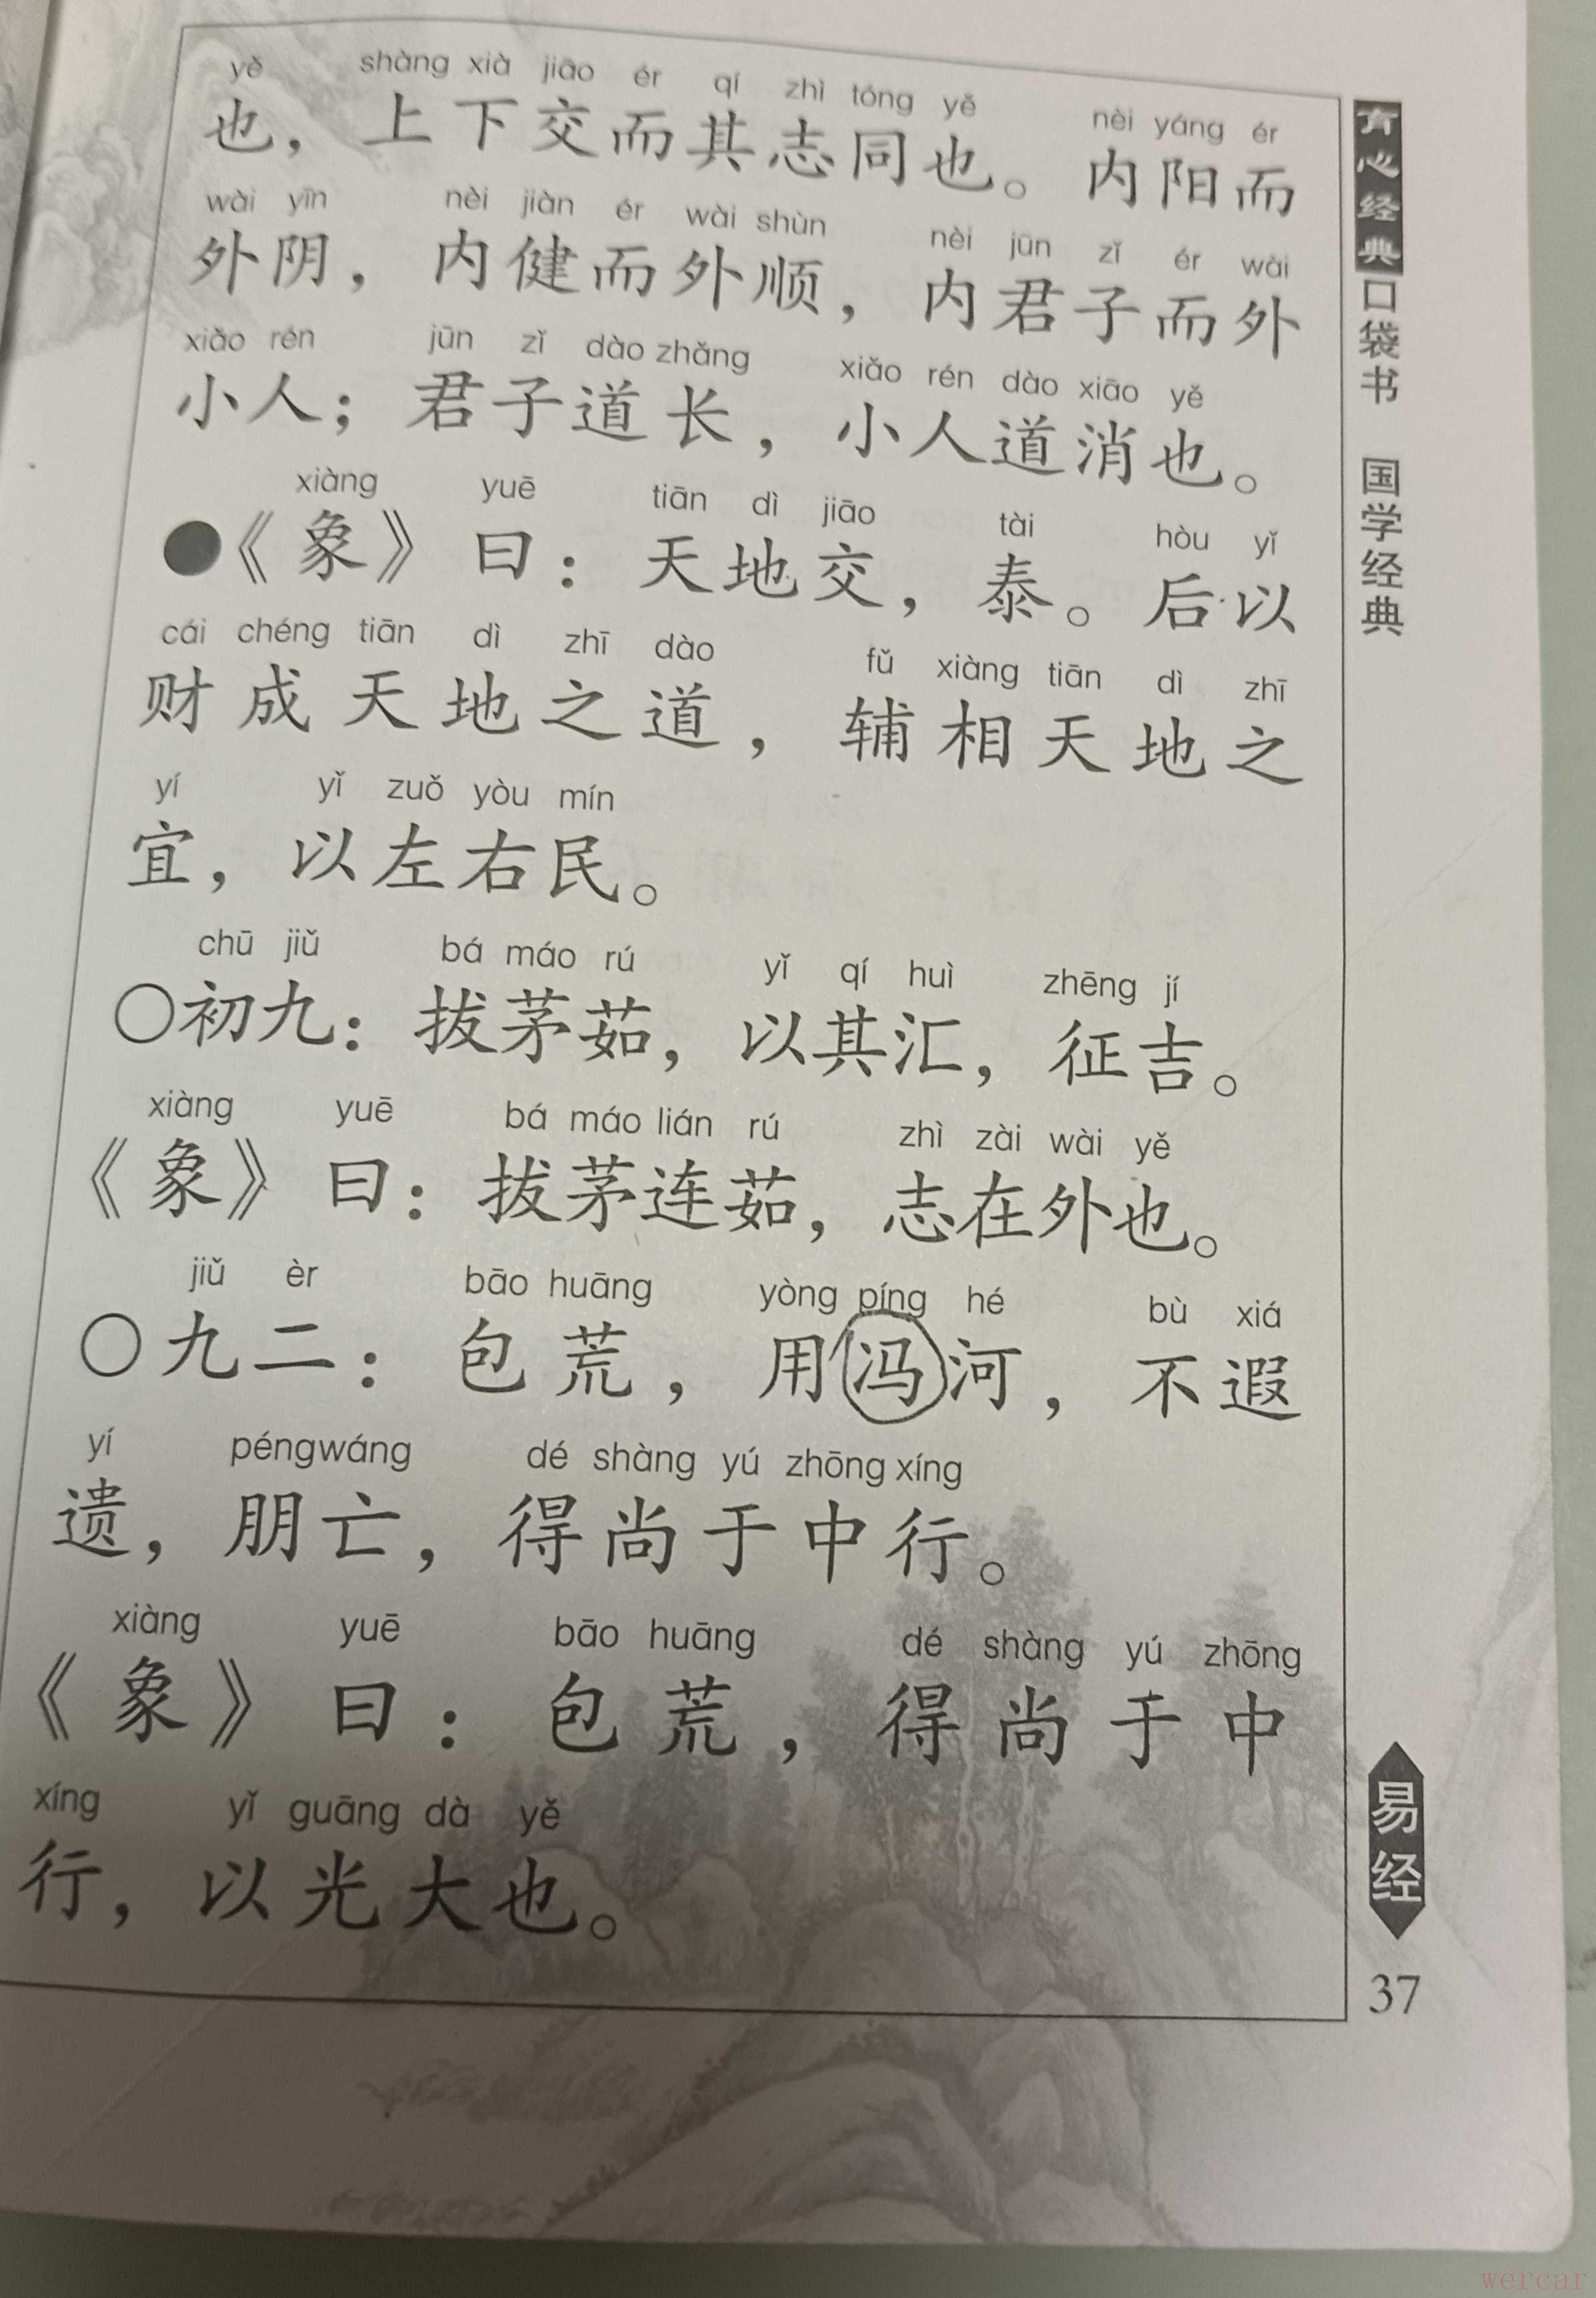 yě shàng xià jiāo ér qí zhì tóng yě nèi yáng ér
也，上下交而其志同也。内阳而
wài yīn nèi jiàn ér wài shùn nèi jūn zǐ ér wài
外阴，内健而外顺，内君子而外
xiǎo rén jūn zǐ dào zhǎng xiǎo rén dào xiāo yě
小人；君子道长，小人道消也。
xiàng yuē tiān dì jiāo tài hòu yǐ
●《象》曰：天地交，泰。后以
cái chéng tiān dì zhī dào fǔ xiàng tiān dì zhī
财成天地之道，辅相天地之
yí yǐ zuǒ yòu mín
宜，以左右民。
chū jiǔ bá máo rú yǐ qí huì zhēng jí
○初九：拔茅茹，以其汇，征吉。
xiàng yuē bá máo lián rú zhì zài wài yě
《象》曰：拔茅连茹，志在外也。
jiǔ èr bāo huāng yòng píng hé bù xiá
○九二：包荒，用冯河，不遐
yí péng wáng dé shàng yú zhōng xíng
遗，朋亡，得尚于中行。
xiàng yuē bāo huāng dé shàng yú zhōng
《象》曰：包荒，得尚于中
xíng yǐ guāng dà yě
行，以光大也。
有心经典口袋书 国学经典
易经
37
wercar